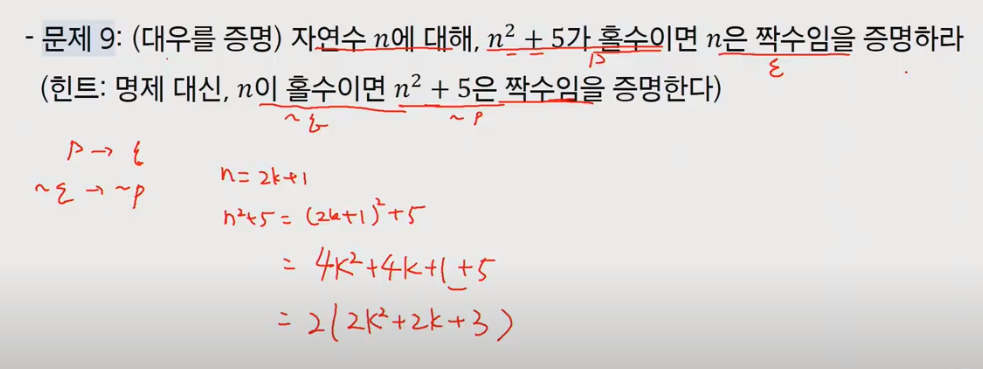 - 문제 9: (대우를 증명) 자연수 n에 대해, n² + 5가 홀수이면 n은 짝수임을 증명하라
p
q
(힌트: 명제 대신, n이 홀수이면 n² + 5은 짝수임을 증명한다)
~q
~p
p → q
~q → ~p
n = 2k+1
n²+5 = (2k+1)²+5
= 4k²+4k+1+5
= 2(2k²+2k+3)